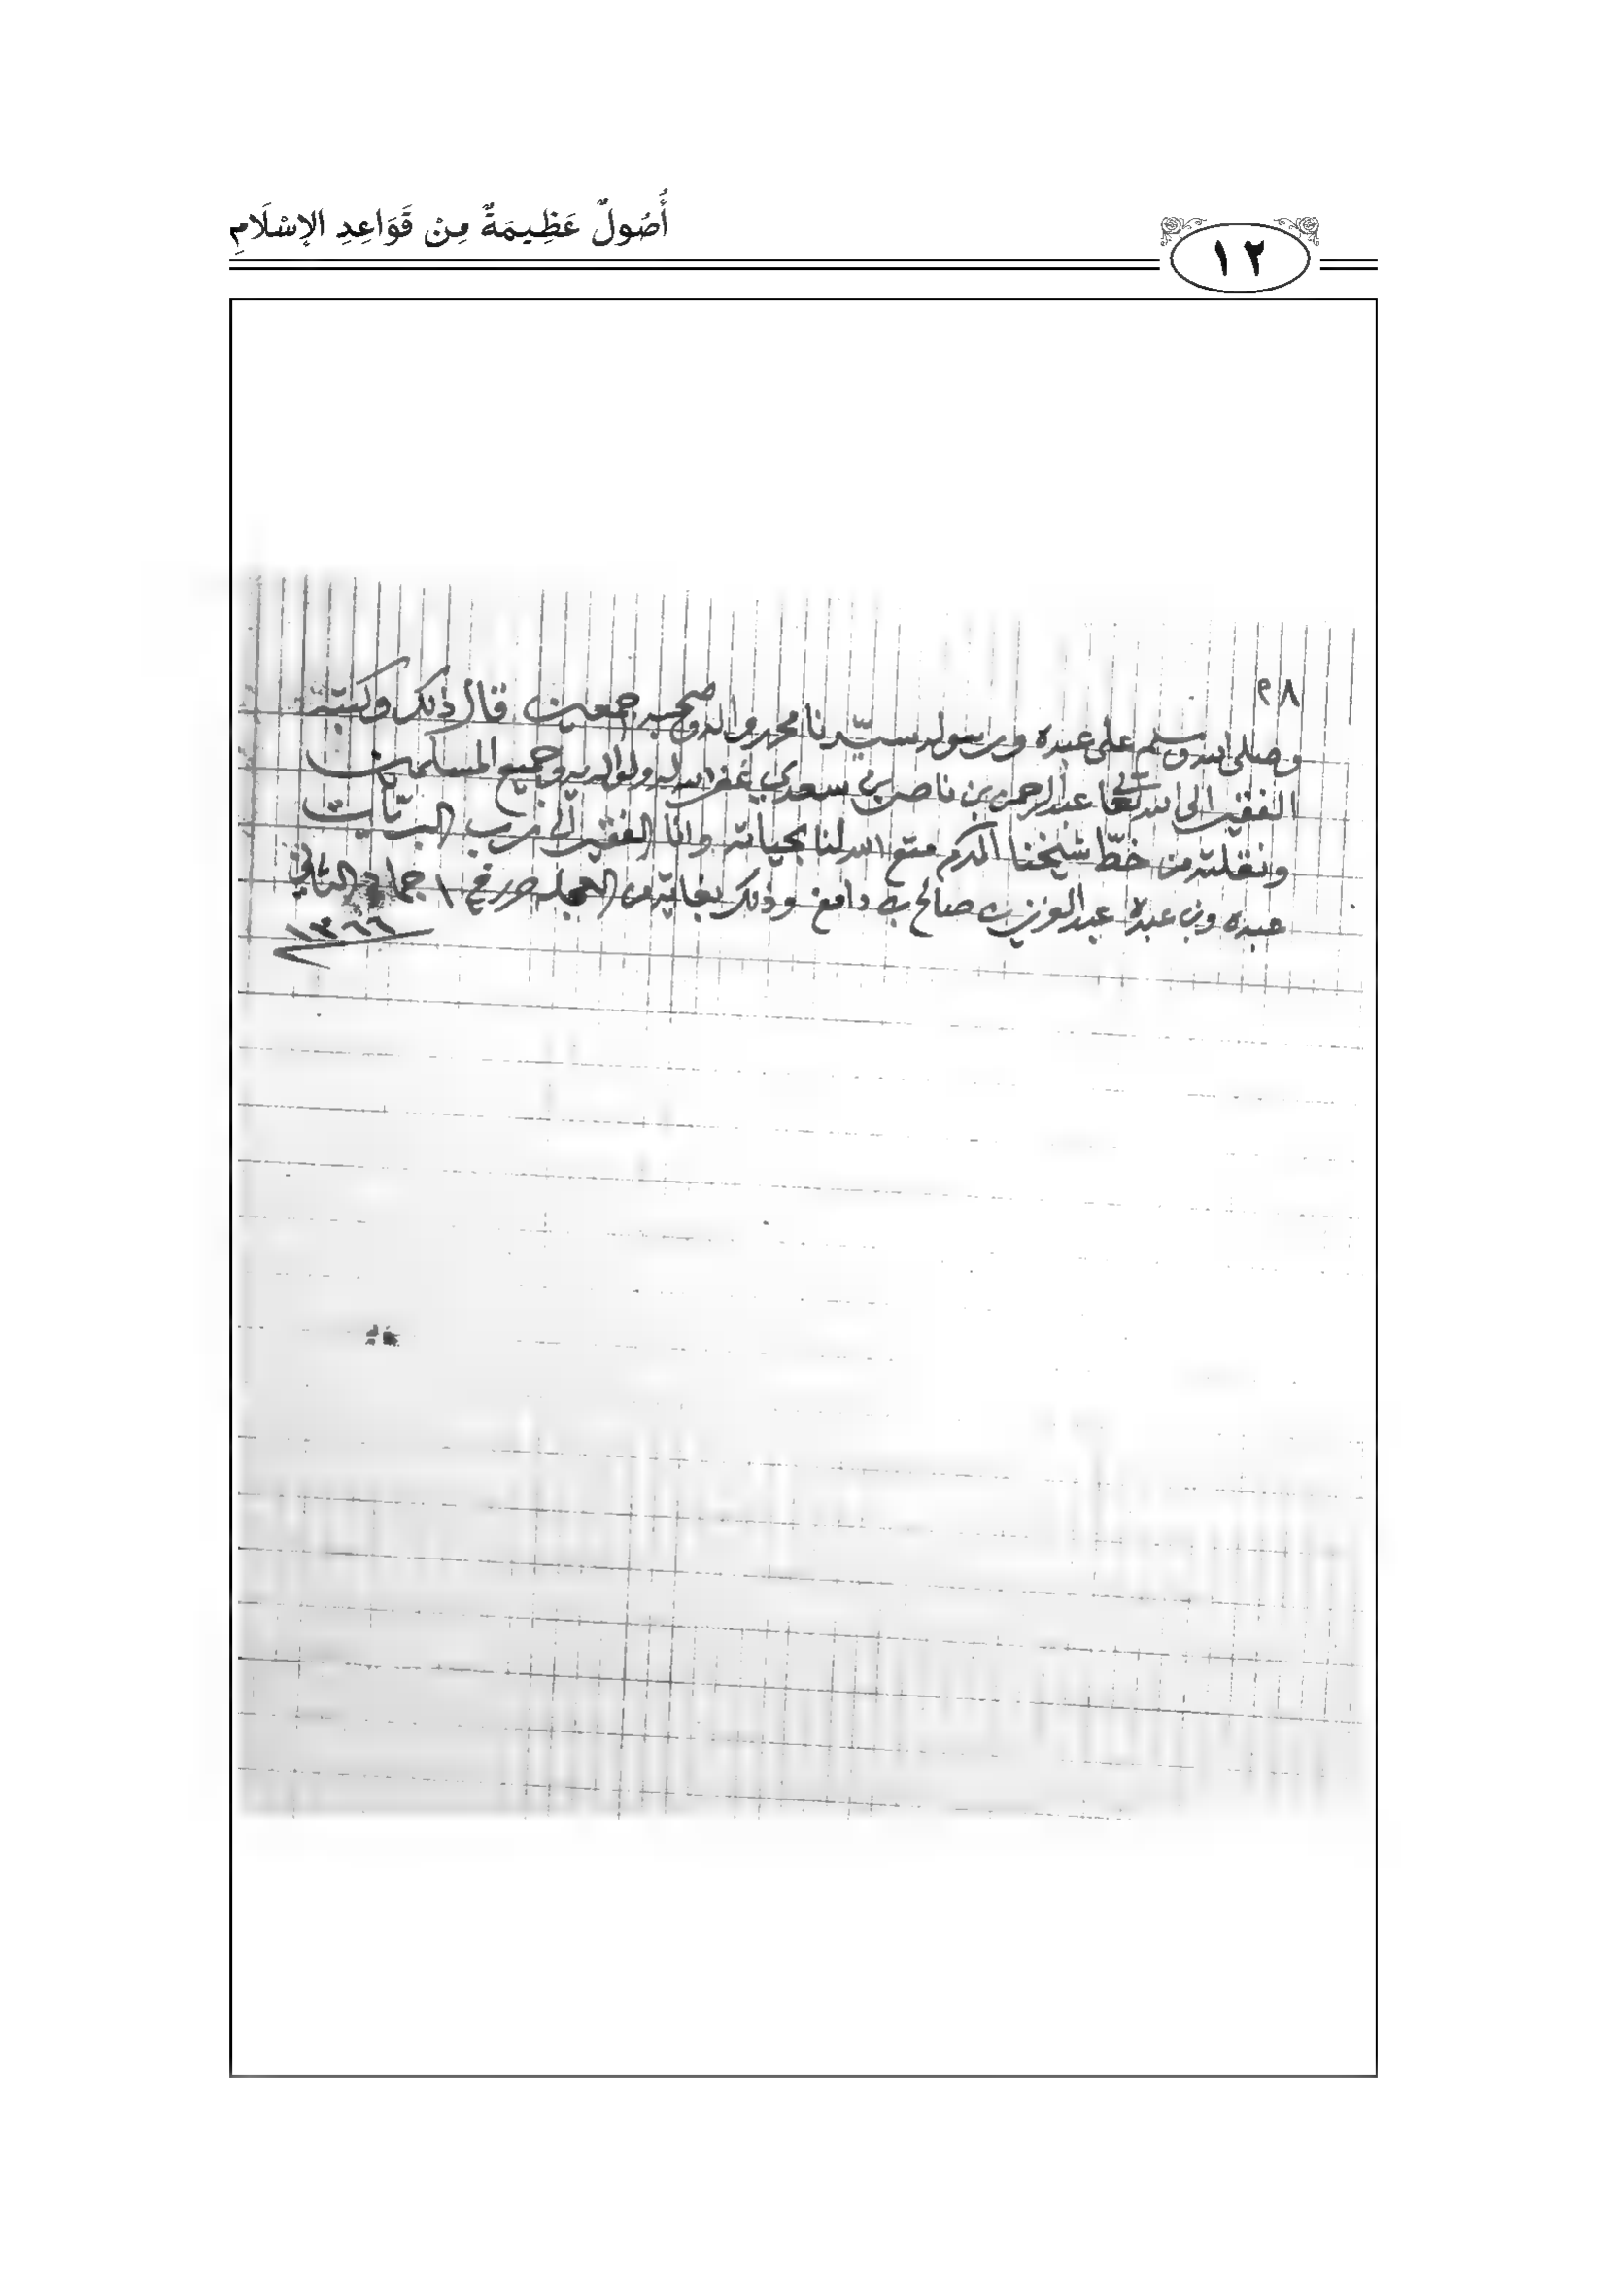 أُصُولٌ عَظِيمَةٌ مِنْ قَوَاعِدِ الإِسْلَامِ
١٢
٢٨
وصلى الله وسلم على عبده ورسوله سيّدنا محمد واله وصحبه اجمعين قال ذلك وكتبه
الفقير الى الله تعالى عبد الرحمن بن ناصر بن سعدي غفر الله له ولوالديه وجميع المسلمين
ونقلته من خطّ شيخنا المكرم متع الله لنا بحياته وانا الفقير الى رب البريّات
عبده وبن عبده عبد العزيز بن صالح بن دامغ وذلك بغاية من العجله حرر في ١ جماد الثاني
١٣٦٦